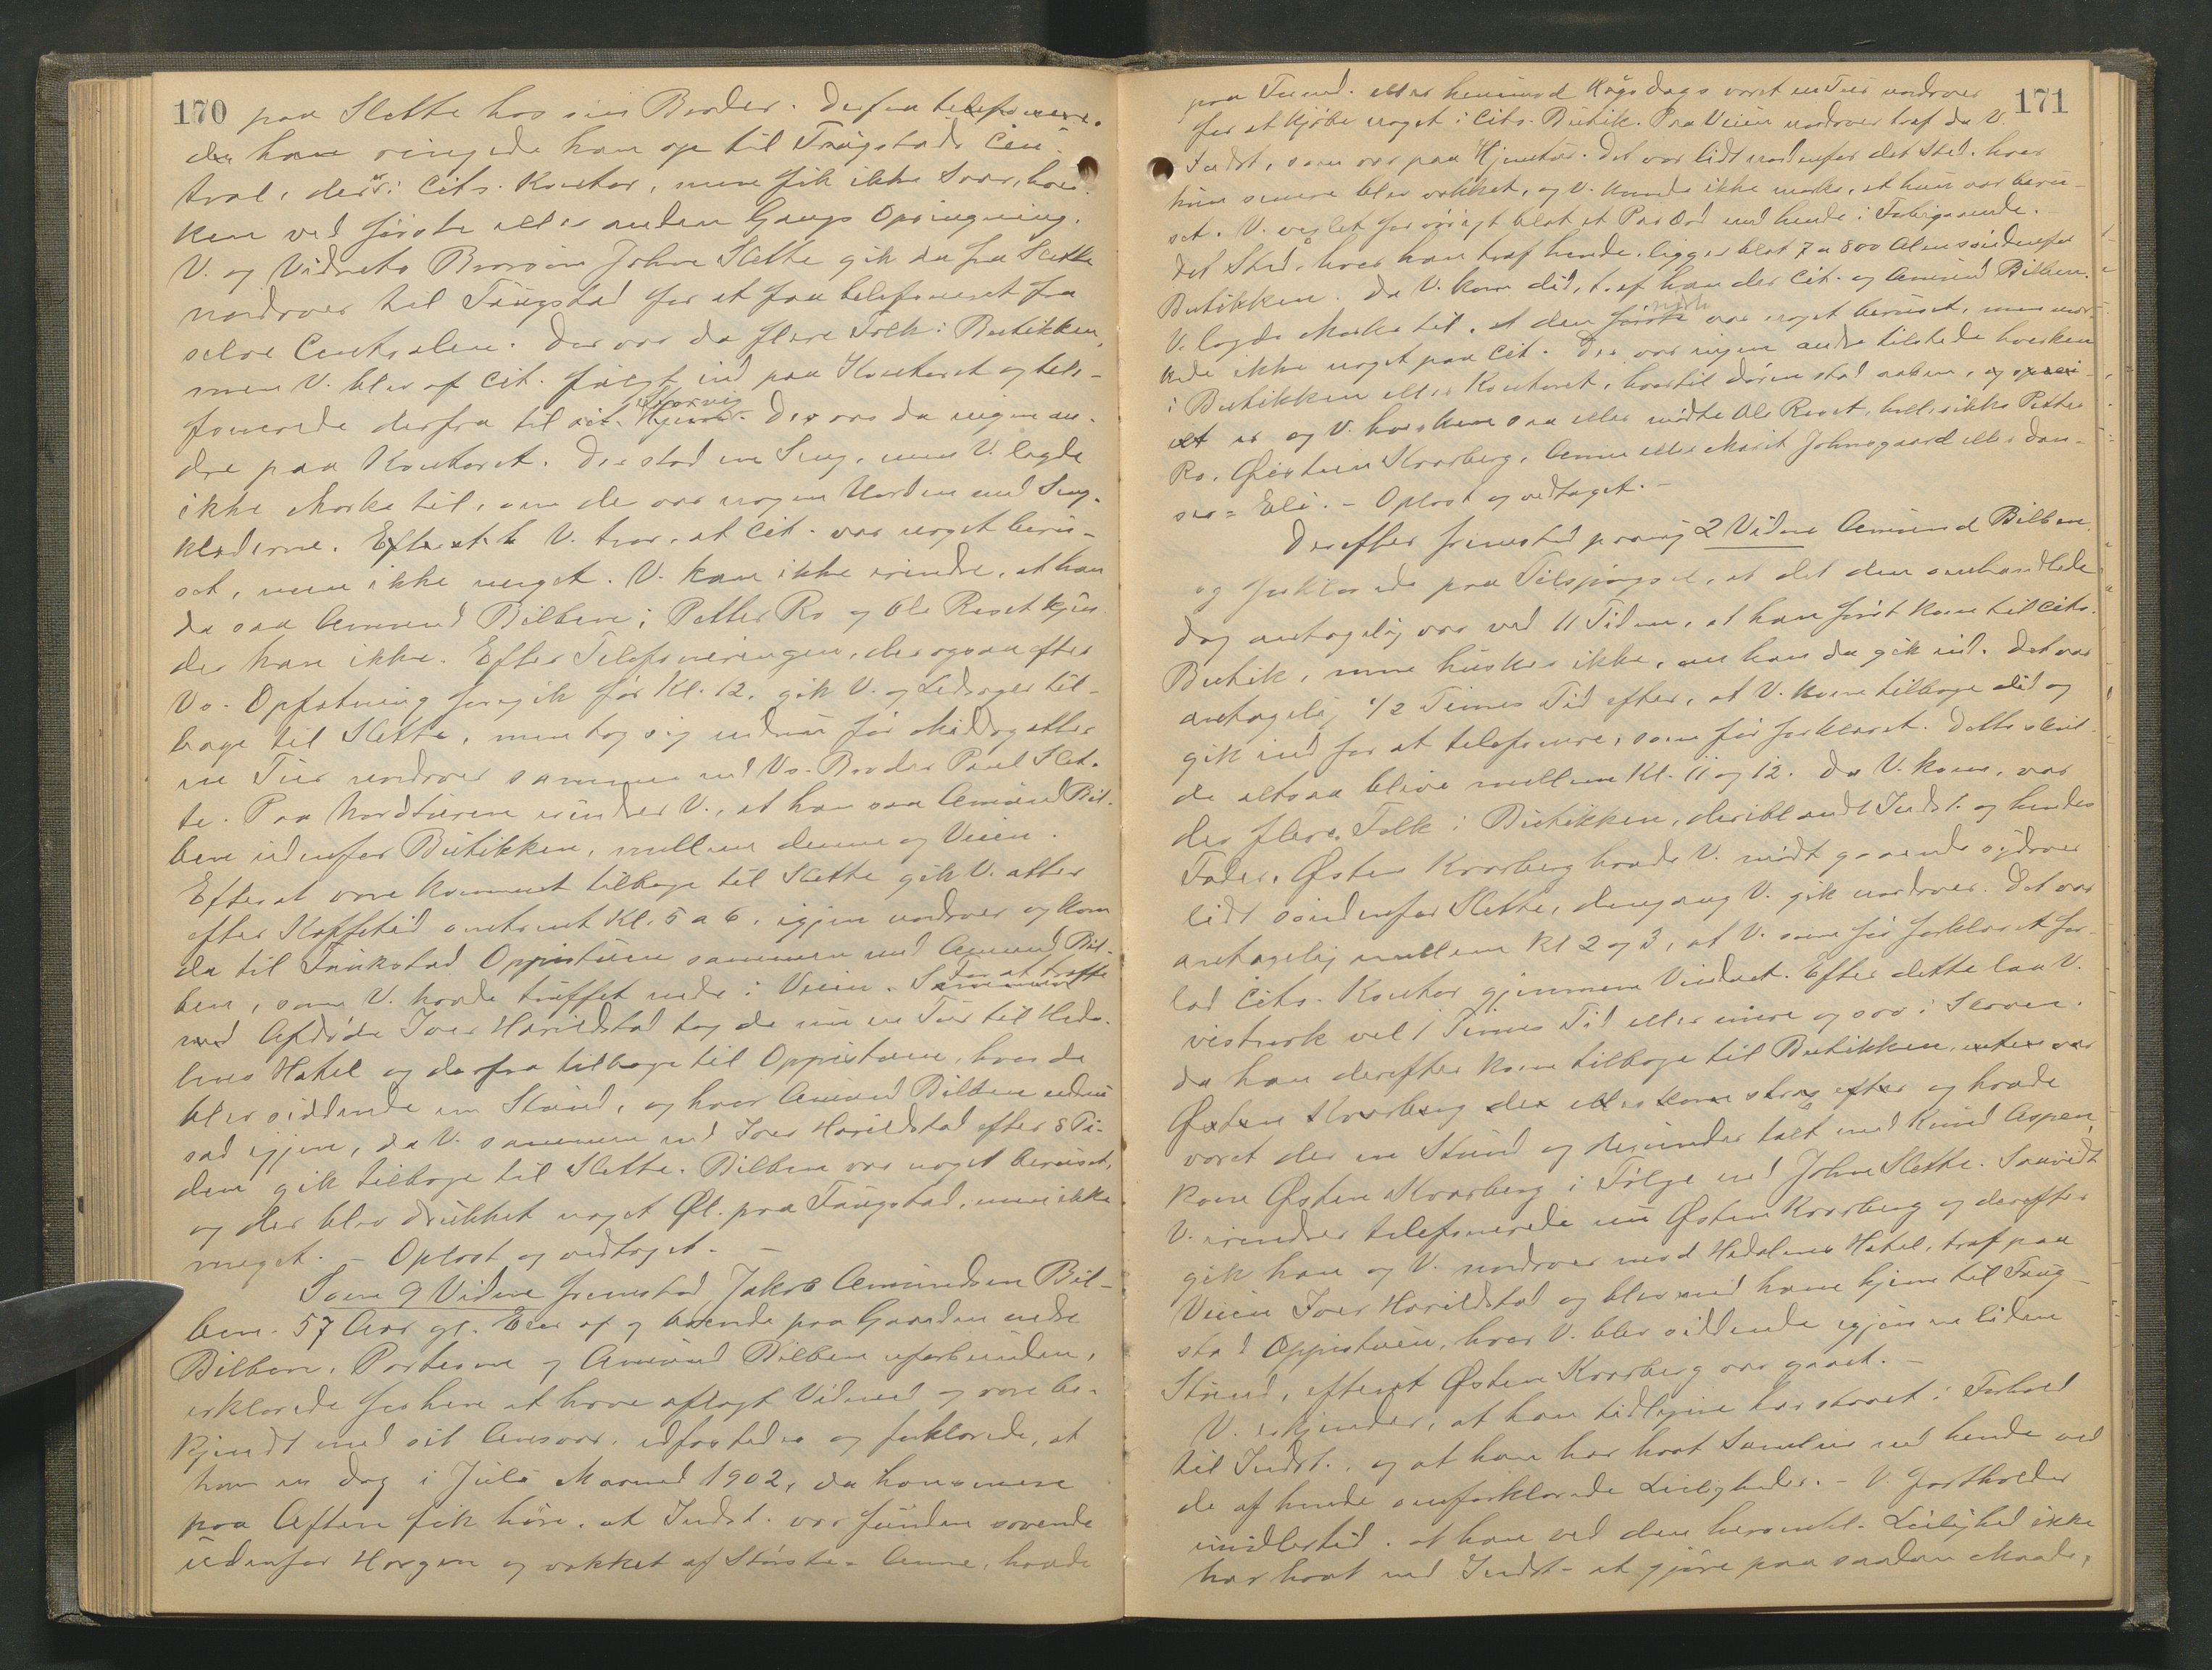 170
paa Slette hos sin Broder. Derfra telefonere-
de han ringede han op til Trugstads Cen-
tral, der er i Cits. Kontor, men fik ikke Svar, hver-
ken ved første eller anden Gangs Opringning.
V. og Vidnets Broder John Slette gik da fra Slette
nordover til Trugstad for at faa telefoneret fra
selve Centralen. Der var da flere Folk i Butikken,
men V. blev af Cit. fulgt ind paa Kontoret og tele-
fonerede derfra til Der var da ingen an-
dre paa Kontoret. Der stod en Seng, men V. lagde
ikke Mærke til, om de var nogen Uorden med Seng-
klæderne. V. tror, at Cit. var noget beru-
set, men ikke meget. V. kan ikke erindre, at han
da saa Amund Bilben; Petter Ro og Ole Ruset kjen-
der han ikke. Efter Telefoneringen, der ogsaa efter
Vs. Opfatning foregik før Kl. 12, gik V. og Ledsager til-
bage til Slette, men tog sig endnu før Middag atter
en Tur nordover sammen med Vs. Broder Paul Slet-
te. Paa Nordturen erindrer V., at han saa Amund Bil-
ben udenfor Butikken, mellem denne og Veien.
Efter at være kommet tilbage til Slette gik V. atter
efter Kaffetid omtrent Kl. 5 a 6, igjen nordover og kom
da til Trukstad Oppistuen sammen med Amund Bil-
ben, som V. havde truffet nede i Veien. For at træffe
Afdøde Iver Harildstad tog de nu en Tur til Heda-
lens Hotel og derfra tilbage til Oppistuen, hvor de
blev siddende en Stund, og hvor Amund Bilben endnu
sad igjen, da V. sammen med Iver Harildstad efter 8 Ti-
den gik tilbage til Slette. Bilben var noget beruset,
og der blev drukket noget Øl paa Trugstad, men ikke
meget. – Oplæst og vedtaget. –
Som 9 Vidne fremstod Jakob Amundsen Bil-
ben. 57 Aar gl. Eier af og boende paa Gaarden nedre
Bilben. Parterne og Amund Bilben uforbunden,
erklærede før here at have aflagt Vidneed og være be-
kjendt med sit Ansvar, edfæstedes og forklarede, at
han en Dag i Juli Maaned 1902, da han senere
paa Aften fik høre, at Indst. var funden sovende
udenfor Horgen og vækket af Største-Anne, havde
171
paa Formd. eller henimod Høgsdags været en Tur nordover
for at kjøbe noget i Cits. Butik. Paa Veien nordover traf da V.
Indst., som var paa Hjemtur. Det var lidt nordenfor det Sted, hvor
hun senere blev vækket, og V. kunde ikke mærke, at hun var beru-
set. V. vexlet for øvrigt blot et Par Ord med hende i Forbigaaende.
Det Sted, hvor han traf hende, ligger blot 7 a 800 Alen søndenfor
Butikken. Da V. kom did, traf han der Cit. og Amund Bilben.
V. lagde Mærke til, at den var noget beruset, men mær-
kede ikke noget paa Cit. Der var ingen andre tilstede hverken
i Butikken eller Kontoret, hvortil døren stod aaben, og
og V. hverken saa eller mødte Ole Ruset, heller ikke Petter
Ro, Øistein Kvarberg, Anne eller Marit Johnsgaard eller Dan-
ser-Eli. – Oplæst og vedtaget. –
Derefter fremstod paany 2 Vidne Amund Bilben
og forklarede paa Tilspørgsel, at det den omhandlede
Dag antagelig var ved 11 Tiden, at han først kom til Cits.
Butik, men husker ikke, om han da gik ind. Det var
antagelig 1/2 Times Tid efter, at V. kom tilbage did og
gik ind for at telefonere, som før forklaret. Dette skul-
de altsaa blive mellem Kl. 11 og 12. Da V. kom, var
der flere Folk i Butikken, deriblandt Indst. og hendes
Fader. Østen Kvarberg havde V. mødt gaaende sydover
lidt søndenfor Slette, dengang V. gik nordover. Det var
antagelig mellem Kl 2 og 3, at V. som før forklaret for-
lod Cits. Kontor gjennem Vinduet. Efter dette laa V.
vistnok vel 1 Times Tid eller mere og sov i Skoven.
Da han derefter kom tilbage til Butikken, enten var
Østen Kvarberg der eller kom strax efter og havde
været der en Stund og talt med Knud Aspen,
kom Østen Kvarberg i Følge med John Slette. Saavidt
V. erindrer telefonerede nu Østen Kvarberg og derefter
gik han og V. nordover mod Hedalens Hotel, traf paa
Veien Iver Harildstad og blev med ham hjem til Trug-
stad Oppistuen, hvor V. blev siddende igjen en liden
Stund, efterat Østen Kvarberg var gaaet. –
V. erkjender, at han tidligere har staaet i Forhold
til Indst., og at han har havt Samleie med hende ved
de af hende omforklarede Leiligheder. – V. fastholder
imidlertid, at han ved den heromhl. Leilighed ikke
har havt med Indst. at gjøre paa saadan Maade,